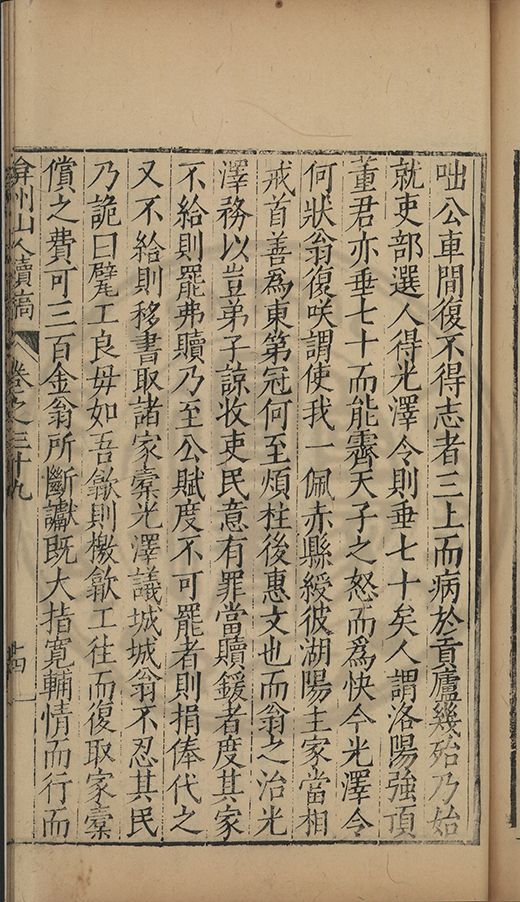 咄公車間復不得志者三上而病於貢廬幾殆乃始
就吏部選人得光澤令則垂七十矣人謂洛陽強項
董君亦垂七十而能霽天子之怒而爲快今光澤令
何狀翁復咲謂使我一佩赤縣綬彼湖陽主家當相
戒首善為東第冠何至煩柱後惠文也而翁之治光
澤務以豈弟子諒收吏民意有罪當贖鍰者度其家
不給則罷弗贖乃至公賦度不可罷者則捐俸代之
又不給則移書取諸家槖光澤議城城翁不忍其民
乃詭曰甓工良毋如吾歙則檄歙工往而復取家槖
償之費可三百金翁所斷讞既大指寛輔情而行而
弇州山人續稿 卷之三十九 十四